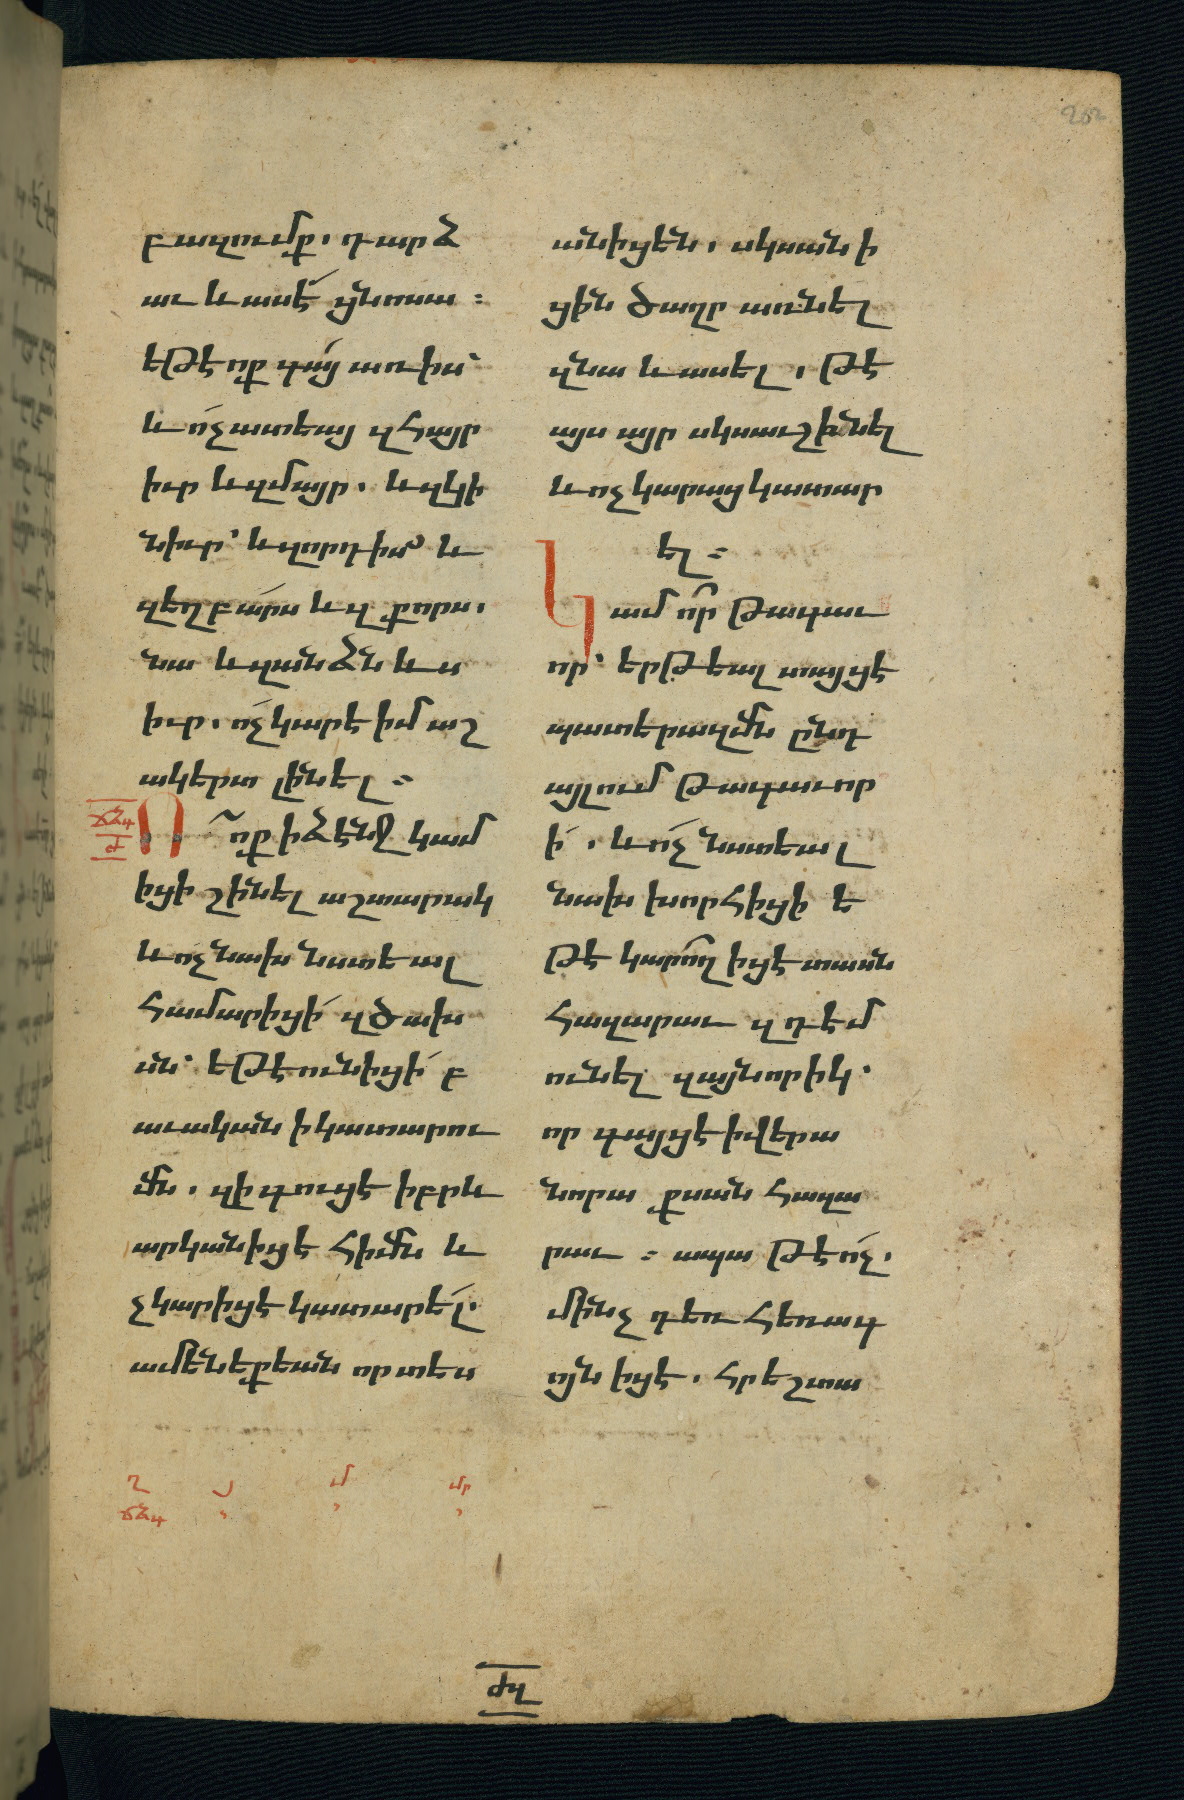 252
բազումք. դարձ
աւ և ասէ ցնոսա :
եթէ ոք գայ առ իս՝
և ոչ ատեայ զհայր
իւր և զմայր. և զկի
ն իւր՝ և զորդիս և
զեղբարս և զքորս.
նա և զանձն ևս
իւր. ոչ կարէ իմ աշ
ակերտ լինել :
ճձգ
ժ
Ո՞ ոք ի ձէնջ կամ
իցի շինել աշտարակ
և ոչ նախ նստեալ
համարիցի զծախ
սն՝ եթէ ունիցի բ
աւական ի կատարու
մն. զի գուցէ իբրև
արկանիցէ հիմն և
չկարիցէ կատարել.
ամենեքեան որ տես
անիցեն. սկսանի
ցին ծաղր առնել
զնա և ասել. թէ
այս այր սկսաւ շինել
և ոչ կարաց կատար
ել :
Կամ ո՞ր թագաւ
որ՝ երթեալ տայցէ
պատերազմն ընդ
այլում թագաւոր
ի. և ոչ նստեալ
նախ խորհիցի ե
թէ կարող իցէ տասն
հազարաւ զդէմ
ունել զայնորիկ՝
որ գայցէ ի վերա
նորա քսան հազա
րաւ : ապա թէ ոչ.
մինչ դեռ հեռագ
ոյն իցէ. հրեշտա
ղ յ մ մր
ճձգ
ժզ